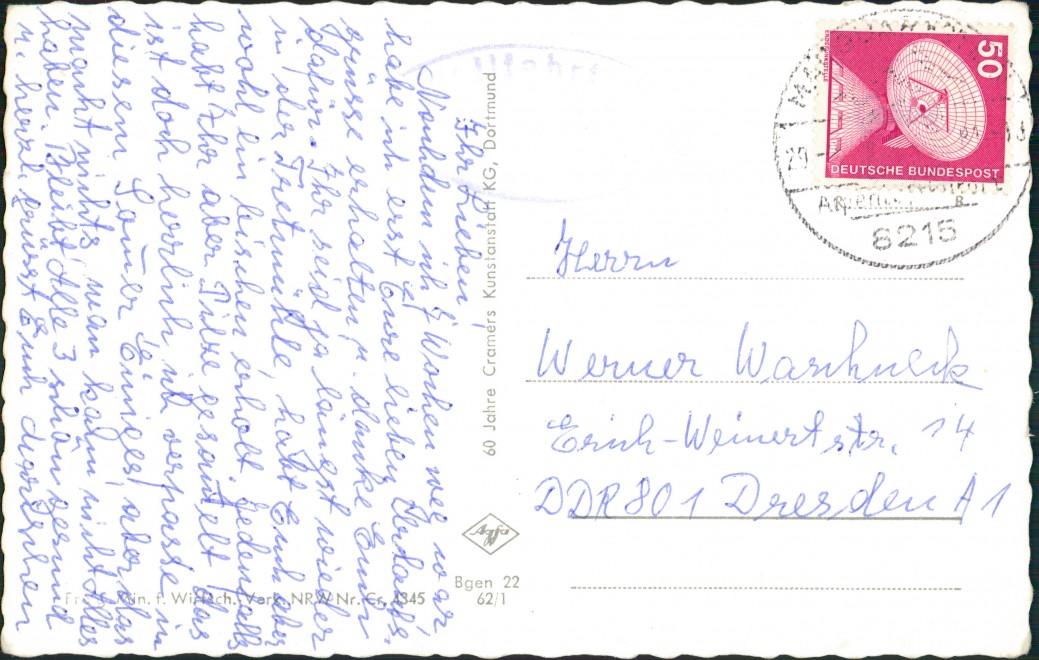 Ihr Lieben!
Nachdem ich 7 Wochen weg war
habe ich erst Eure lieben Urlaubs-
grüsse erhalten u. danke Euch
dafür. Ihr seid ja längst wieder
in der Tretmühle, habt Euch aber
wohl ein bischen erholt. Jedenfalls
habt Ihr aber Pilze gesammelt das
ist doch herrlich ich verpasse in
diesem Somer Einiges, aber das
macht nichts man kann nicht Alles
haben. Bleibt Alle 3 schön gesund
u. herzl. grüsst Euch
60 Jahre Cramers Kunstanstalt KG, Dortmund
Agfa
Bgen 22
62/1
Min. f. Wirtsch. Verk. NRW Nr. Cr. 4345
50
DEUTSCHE BUNDESPOST
8215
Herrn
Werner Waschneck
Erich-Weinertstr. 14
DDR 801 Dresden A1